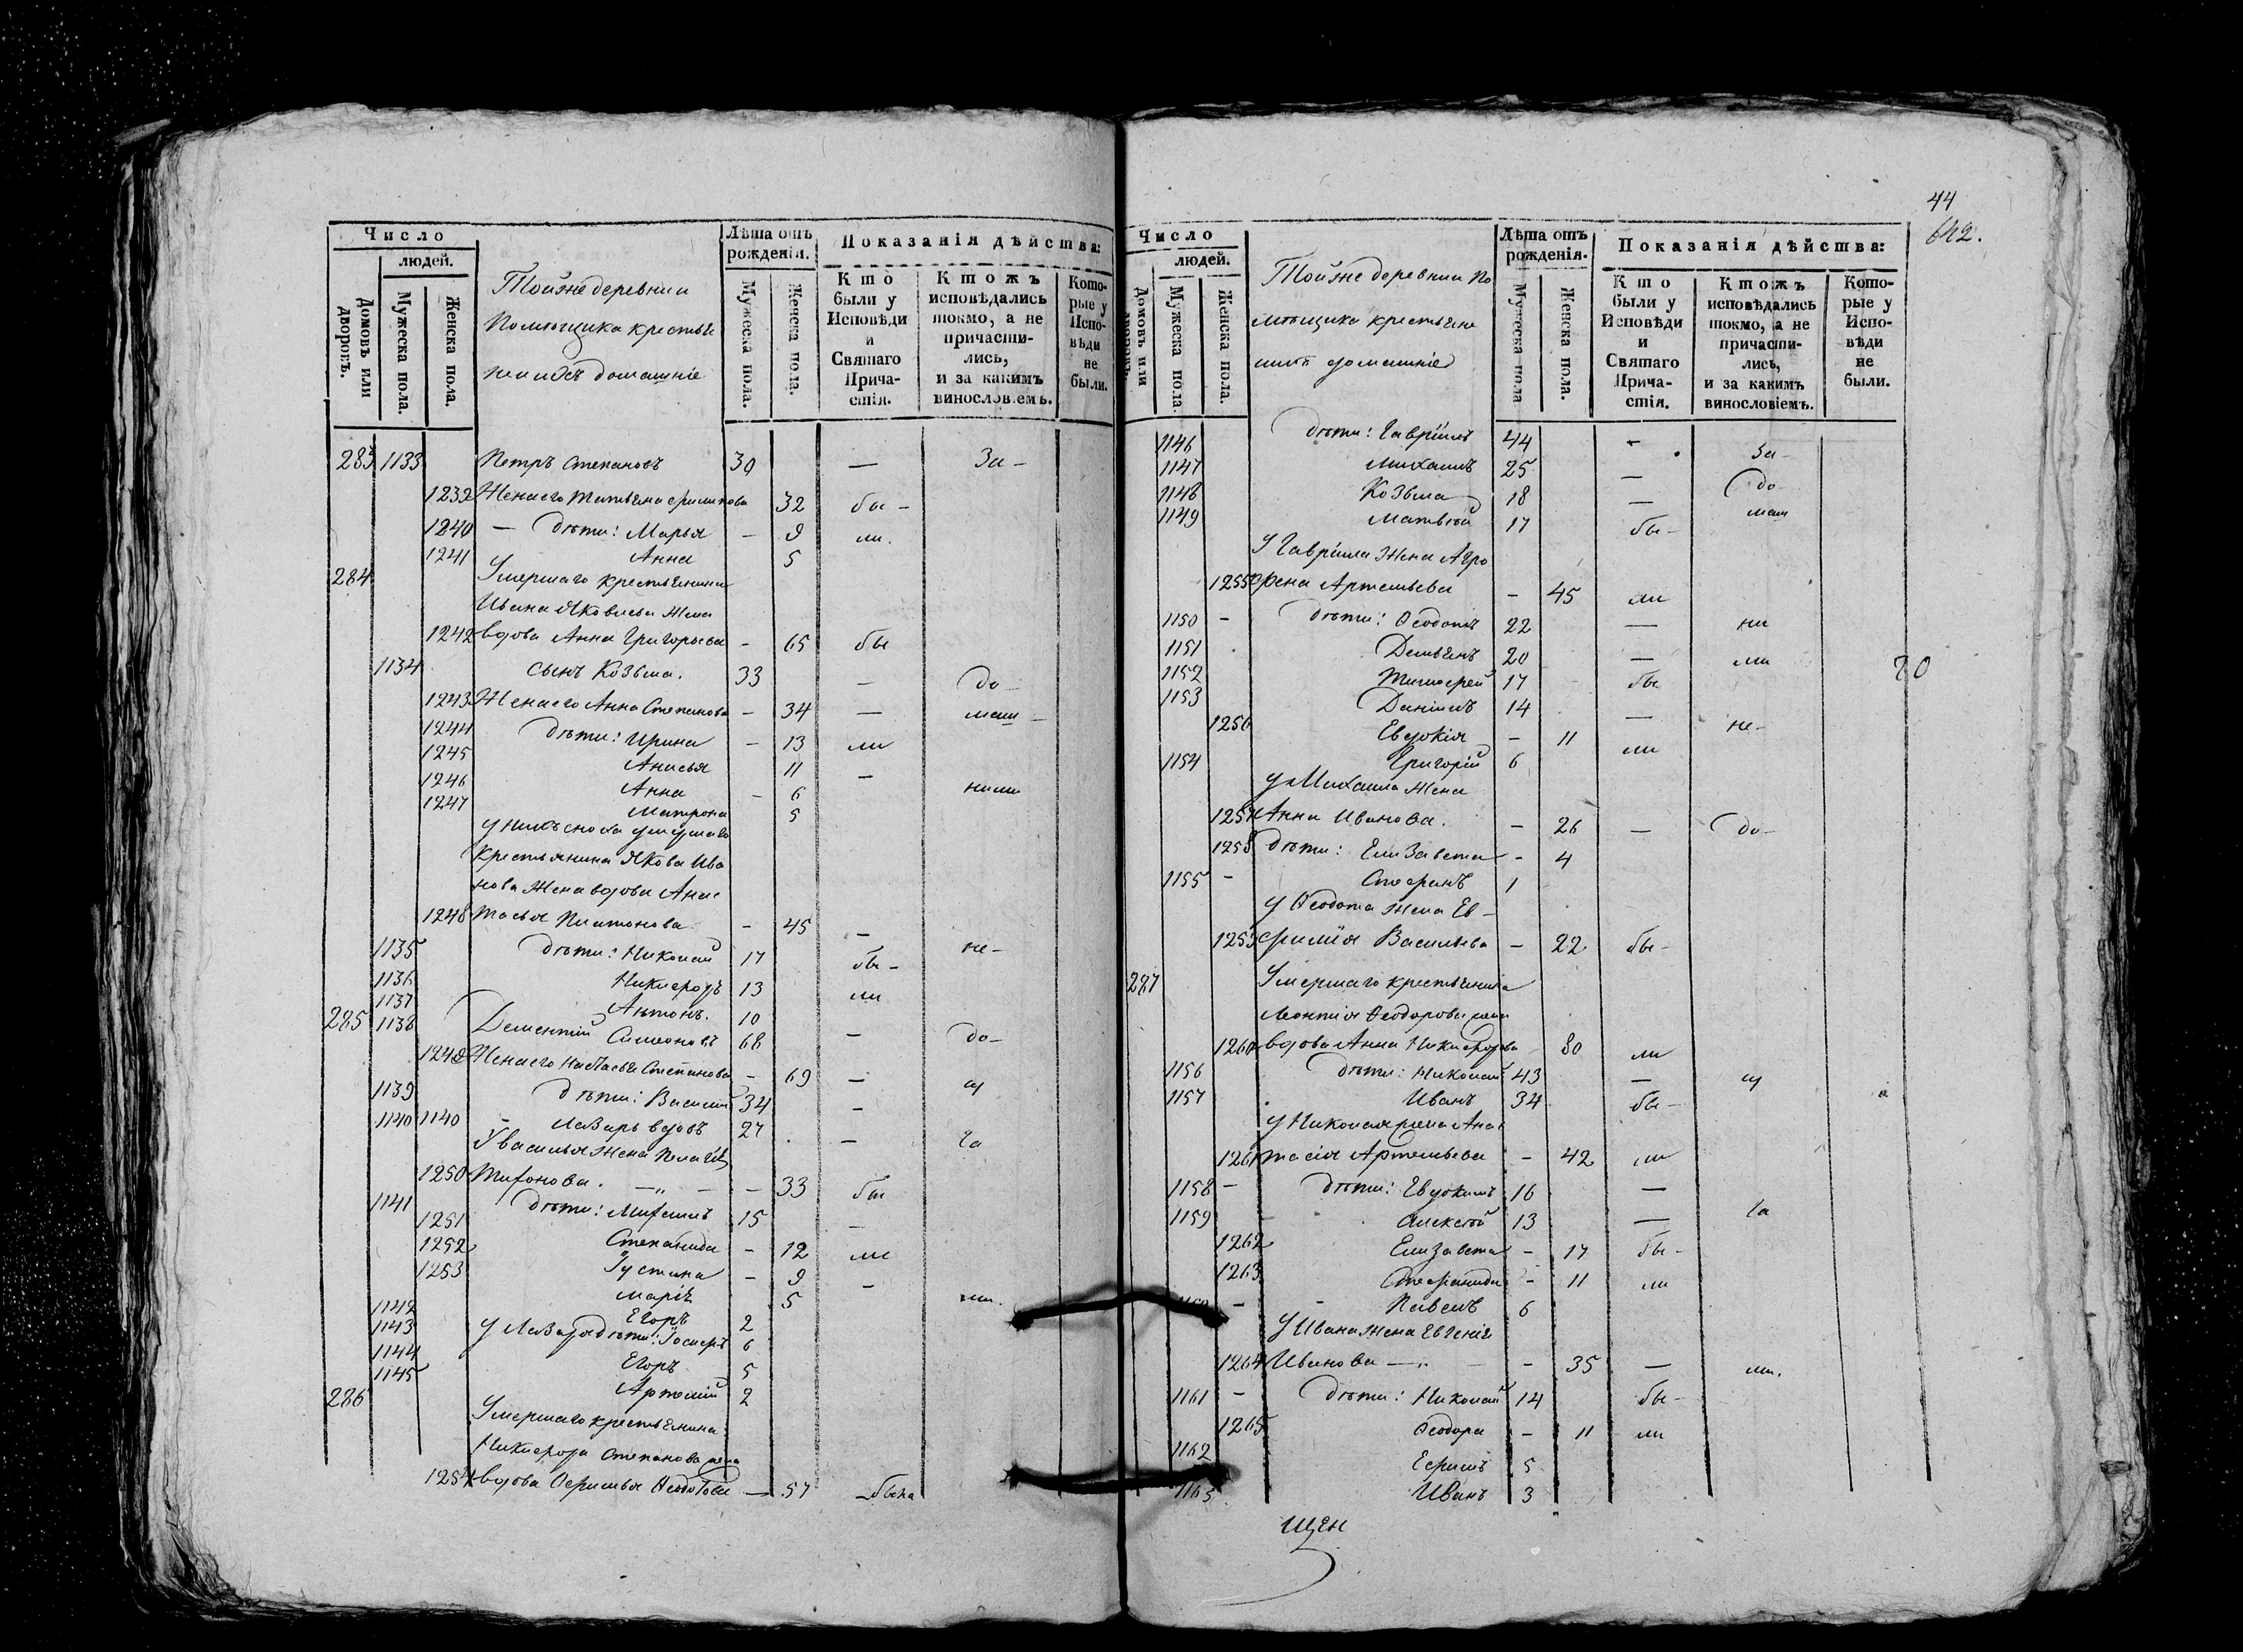 Число
людей.
Домовъ или дворовъ.
Мужеска пола.
Женска пола.
Тойже деревни и
Помѣщика крестья
не и ихъ домашніе
Лѣта отъ рожденія.
Мужеска пола.
Женска пола.
Показанія дѣйства:
Кто были у Исповѣди и Святаго Причастія.
Ктожъ исповѣдались токмо, а не причастились, и за какимъ винословіемъ.
Которые у Исповѣди не были.
283 1133 Петръ Степановъ 30 — За-
1239 Жена его Татьяна 32 бы-
1240 — дѣти: Марья - 9 ли.
1241 Анна 5
284 Умершаго крестьянина
Ивана Яковлева жена
1242 вдова Анна Григорьева - 65 бы
1134 сынъ Козьма. 33 — до-
1243 Жена его Анна Степанова - 34 — маш-
1244 дѣти: Ирина - 13 ли
1245 Анисья 11 —
1246 Анна - 6 ними
1247 Матрона 5
у нихъ сноха умершаго
крестьянина Якова Ива
нова жена вдова Анас
1248 тасья Платонова - 45 —
1135 дѣти: Николай 17 бы- не-
1136 Никифоръ 13 ли
1137 Антонъ. 10
285 1138 Дементій Симеоновъ 68 — до-
1249 Жена его Настасья Степанова - 69 —
1139 дѣти: Василій 34 — су
1140 1140 - Лазарь вдовъ 27 —
У Василья жена Пелагія га
1250 Тихонова. — - - 33 бы
1141 дѣти: Михаилъ 15 —
1251 Степанида - 12 ли
1252 Іустина - 9 —
1253 Марія 5 ми.
1142 Егоръ 2
1143 у Лазаря дѣти: Іосифъ 6
1144 Егоръ 5
1145 Артемій 2
286 Умершаго крестьянина
Никифора Степанова жена
1254 вдова Офимья Ѳеодотова — 57 была
44
642.
Число
людей.
Домовъ или дворовъ.
Мужеска пола.
Женска пола.
Тойже деревни По
мѣщика крестьяне
ихъ домашніе
Лѣта отъ рожденія.
Мужеска пола
Женска пола.
Показанія дѣйства:
Кто были у Исповѣди и Святаго Причастія.
Ктожъ исповѣдались токмо, а не причастились, и за какимъ винословіемъ.
Которые у Исповѣди не были.
1146 дѣти: Гавріилъ 44 - За-
1147 Михаилъ 25 — до
1148 Козьма 18 — маш
1149 Матвѣй 17 бы-
У Гавріила жена Агро
1255 фена Артемьева - 45 ли
1150 - дѣти: Ѳеодотъ 22 — ни
1151 Демьянъ 20 — ми
1152 Тимофей 17 бы
1153 Даніилъ 14 —
1256 Евдокія - 11 ли не-
1154 Григорій 6
у Михаила жена
1257 Анна Иванова. - 26 — до-
1258 дѣти: Елизавета - 4
1155 - Стефанъ 1
у Ѳеодота жена Ев-
1259 фимія Васильева - 22 бы-
287 Умершаго крестьянина
Леонтія Ѳеодорова жена
1260 вдова Анна Никифорова - 80 ли
1156 дѣти: Николай 43 — су
1157 Иванъ 34 бы-
у Николая жена Анас
1261 тасія Артемьева - 42 ли
1158 - дѣти: Евдокимъ 16 —
1159 Алексѣй 13 — га
1262 Елизавета - 17 бы-
1263 Стефанида - 11 ли
- Павелъ 6
У Ивана жена Евгенія
1264 Иванова — - 35 — ми.
1161 - дѣти: Николай 14 бы-
1265 Ѳеодора - 11 ли
1162 Ефимъ 5
1163 Иванъ 3